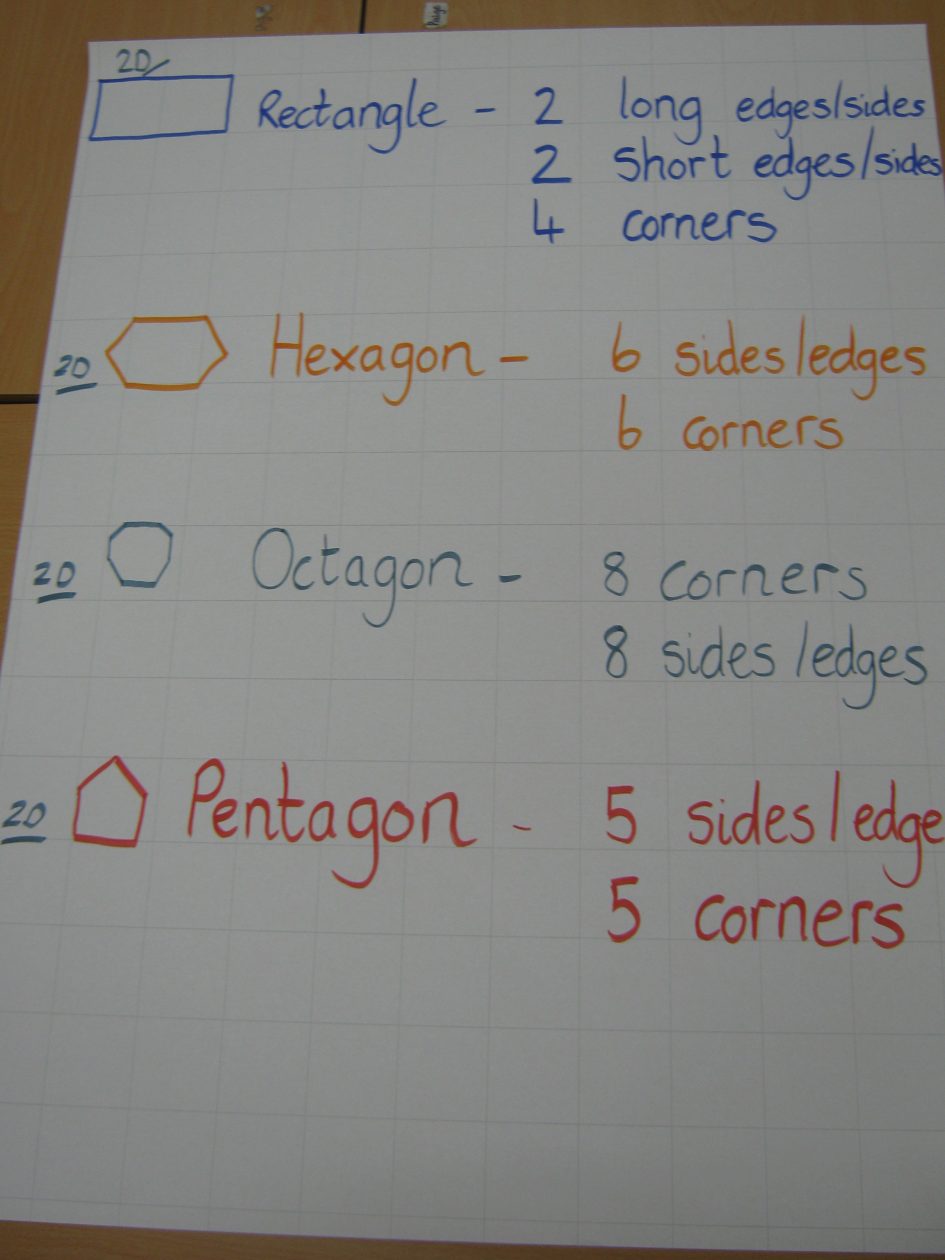 2D
Rectangle - 2 long edges/sides
2 short edges/sides
4 corners
2D Hexagon - 6 sides/edges
6 corners
2D Octagon - 8 corners
8 sides/edges
2D Pentagon - 5 sides/edge
5 corners